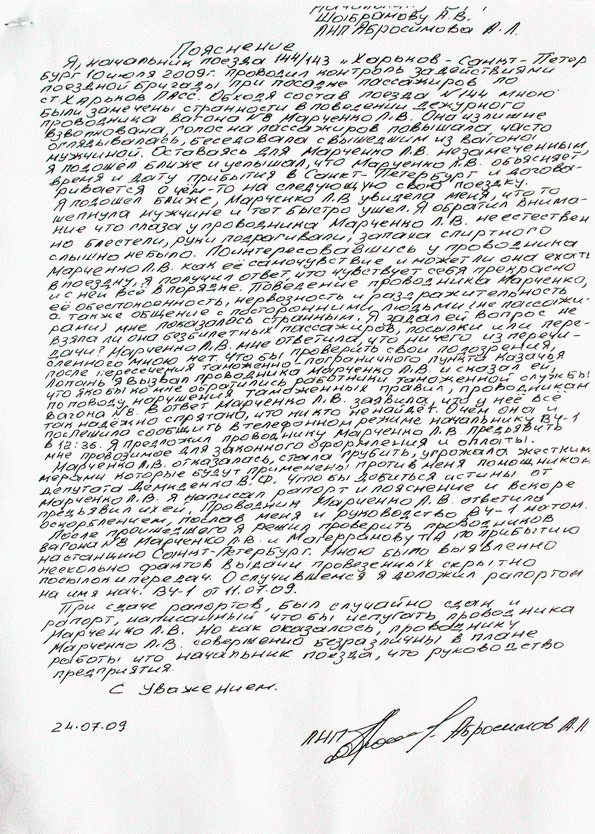 Шыбранову А.В.
ЛНП Абросимова А.Л.
Пояснение
Я, начальник поезда 144/143 "Харьков - Санкт - Петер
бург 10 июля 2009г. проводил контроль за действиями
поездной бригады при посадке пассажиров по
ст Харьков Пасс. Обходя состав поезда №144 мною
были замечены странности в поведении дежурного
проводника вагона №8 Марченко Л.В. Она излишне
взволнована, голос на пассажиров повышала, часто
оглядывалась, беседовала с вышедшим из вагона
мужчиной. Оставаясь для Марченко Л.В. незамеченным,
я подошел ближе и услышал, что Марченко Л.В. объясняет
время и дату прибытия в Санкт-Петербург и догова-
ривается о чём-то на следующую свою поездку.
Я подошел ближе, Марченко Л.В увидела меня, что то
шепнула мужчине и тот быстро ушел. Я обратил внима-
ние что глаза у проводника Марченко Л.В. неестествен
но блестели, руки подрагивали, запаха спиртного
слышно небыло. Поинтересовавшись у проводника
Марченко Л.В. как её самочувствие и может ли она ехать
в поездку, я получил ответ, что чувствует себя прекрасно
и с ней всё в порядке. Поведение проводника Марченко,
её обеспокоенность, нервозность и раздражительность
а также общение с посторонними людьми (не пассажи-
рами) мне показалось странным. Я задал ей вопрос не
взяла ли она безбилетных пассажиров, посылки или пере-
дачи? Марченко Л.В. мне ответила, что ничего из перечи-
сленного мною нет. Что бы проверить свои подозрения,
после пересечения таможенно-пограничного пункта Казачья
Лопань я вызвал проводника Марченко Л.В. и сказал ей,
что якобы ко мне обратились работники таможенной службы
по поводу нарушения таможенных правил, проводникам
вагона №8. В ответ Марченко Л.В. заявила, что у неё всё
так надёжно спрятано, что никто не найдёт. О чём она и
поспешила сообщить в телефонном режиме начальнику ВЧ-1
в 12:36. Я предложил проводнику Марченко Л.В предъявить
мне провозимое для законного оформления и оплаты.
Марченко Л.В. отказалась, стала грубить, угрожала жесткими
мерами которые будут применены против меня помощником
депутата Демиденко В.Ф. Что бы добиться истины от
Марченко Л.В. я написал рапорт и пояснение и вскоре
предъявил их ей, Проводник Марченко Л.В. ответила
оскорблением, послав меня и руководство ВЧ-1 матом.
После происшедшего я решил проверить проводников
вагона №8 Марченко Л.В. и Магеррамову по прибытию
на станцию Санкт-Петербург. Мною было выявленно
несколько фактов выдачи провезенных скрытно
посылок и передач. О случившемся я доложил рапортом
на имя нач. ВЧ-1 от 11.07.09.
При сдаче рапортов, был случайно сдан и
рапорт, написанный что бы испугать проводника
Марченко Л.В. Но как оказалось, проводнику
Марченко Л.В. совершенно безразличны в плане
работы что начальник поезда, что руководство
предприятия.
С Уважением.
24.07.09
ЛНП Абросимов А.Л